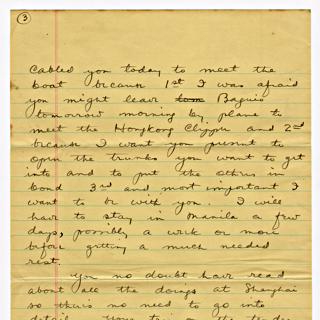 3
Cabled you today to meet the
boat because 1st I was afraid
you might leave Baguio
tomorrow morning by plane to
meet the Hongkong Clipper and 2nd
because I want you present to
open the trunks you want to get
into and to put the others in
bond 3rd and most important I
want to be with you. I will
have to stay in Manila a few
days, possibly a week or more
before getting a much needed
rest.
You no doubt have read
about all the doings at Shanghai
so there's no need to go into
detail